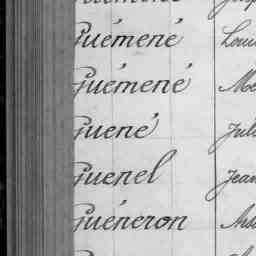 Guémené
Guémené
Guené Juli
Guenel Jean
Guéneron